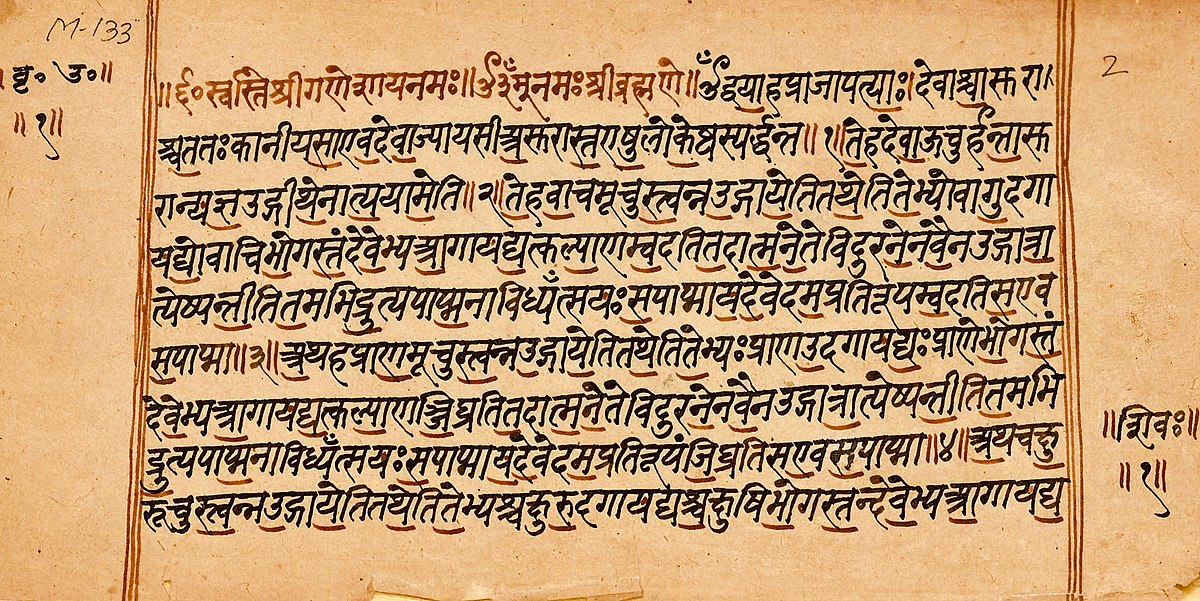 M-133
बृ॰ उ॰॥
॥१॥
2
॥६॰ स्वस्तिश्रीगणेशायनमः॥ॐनमःश्रीब्रह्मणे॥ॐद्वयाहप्राजापत्याः।देवाश्चासुरा।
श्चततःकानीयसाएवदेवाज्यायसीअसुरास्तएषुलोकेष्वस्पर्द्धन्त॥१॥तेहदेवाऊचुर्हन्तासु
रान्यज्ञउद्गीथेनात्ययामेति॥२॥तेहवाचमूचुस्त्वन्नउद्गायेतितथेतितेभ्योवागुदगा
यद्योवाचिभोगस्तंदेवेभ्यआगायद्यत्कल्याणम्वदतितदात्मनेतेविदुरनेनवैनउद्गात्रा
त्येष्यन्तीतितमभिद्रुत्यपाप्मनाविध्यँत्सयःसपाप्मायदेवेदमप्रतिरूपम्वदतिसएव
सपाप्मा॥३॥अथहप्राणमूचुस्त्वन्नउद्गायेतितथेतितेभ्यःप्राणउदगायद्यःप्राणेभोगस्तं
देवेभ्यआगायद्यत्कल्याणञ्जिघ्रतितदात्मनेतेविदुरनेनवैनउद्गात्रात्येष्यन्तीतितमभि
द्रुत्यपाप्मनाविध्यँत्सयःसपाप्मायदेवेदमप्रतिरूपंजिघ्रतिसएवसपाप्मा॥४॥अथचक्षु
रूचुस्त्वन्नउद्गायेतितथेतितेभ्यश्चक्षुरुदगायद्यश्चक्षुषिभोगस्तन्देवेभ्यआगायद्य
॥शिवः॥
॥१॥